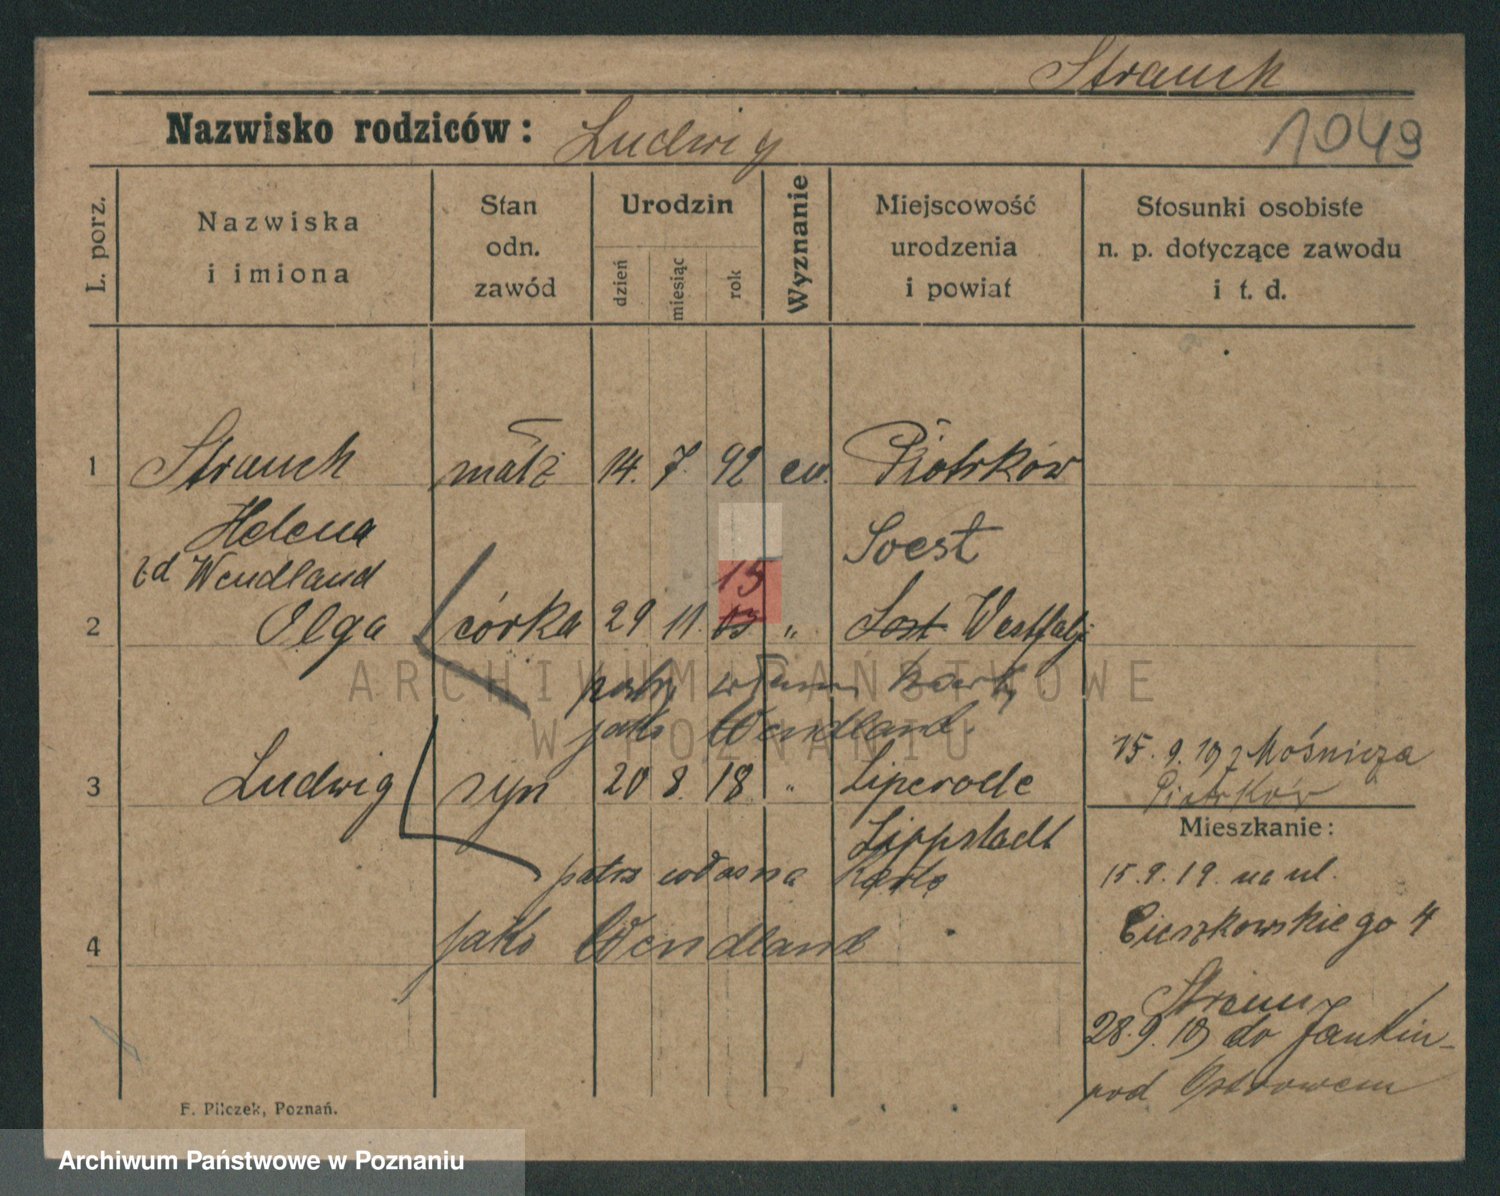 Strauch
Nazwisko rodziców: Ludwig
1049
L. porz.
Nazwiska
i imiona
Stan
odn.
zawód
Urodzin
dzień
miesiąc
rok
Wyznanie
Miejscowość
urodzenia
i powiat
Stosunki osobiste
n. p. dotyczące zawodu
i t. d.
1 Strauch małż 14. 7. 92 ev. Piotrków
Helena
Soest
Wendland
15
2 Olga córka 29 11. 13 „ Sost Westfalj
patrz kartę
jako Wendland
15. 9. 19 z Mośnicza
3 Ludwig syn 20 8. 18 „ Liperode
Piotrków
Mieszkanie:
Lippstadt
patrz własna Karta
15. 9. 19. na ul.
Cieszkowskiego 4
4 jako Wendland
28. 9. 19 do
pod Ostrowem
F. Pilczek, Poznań.
ARCHIWUM PAŃSTWOWE
W POZNANIU
Archiwum Państwowe w Poznaniu